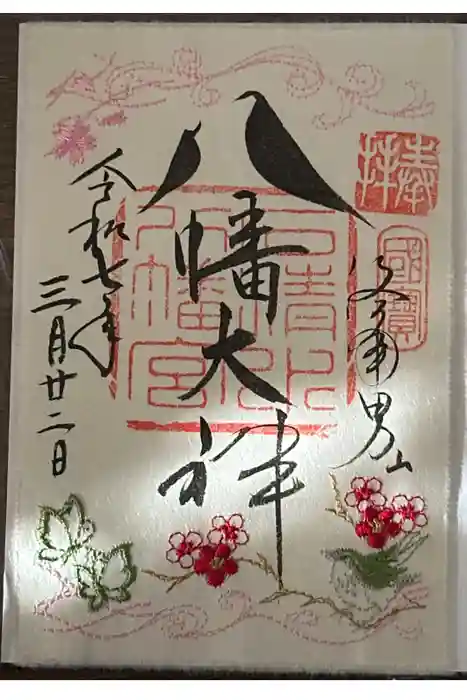 奉拝
國寶
洛南男山
八幡大神
石清水
八幡宮
令和七年
三月廿二日